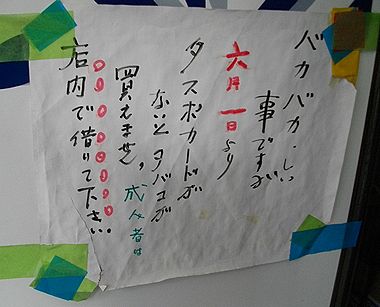 バカバカしい
事ですが
六月一日より
タスポカードが
ないとタバコが
買えません。成人者は
店内で借りて下さい。